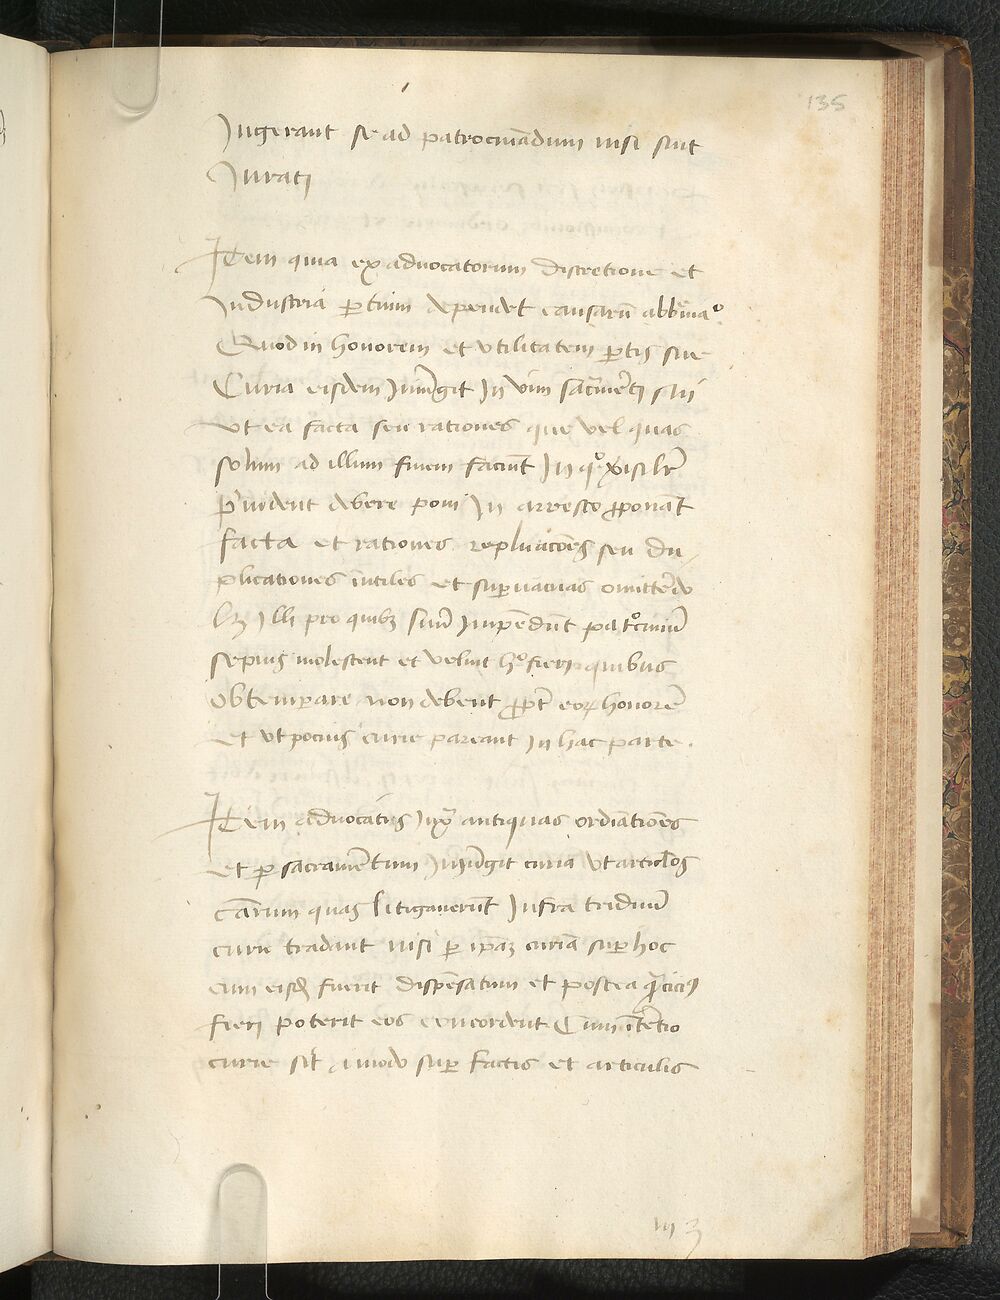 135
Ingerant se ad patrocinādum nisi sint
Jurati
Item quia ex advocatorum discretione et
Industria ꝑtim dependet causarū abbreuiatio
Quod in honorem et utilitatem ꝑtis sue
Curia eisdem Iniūgit In vim sacramēti sui
ut ea facta seu rationes que vel quas
solum ad illum finem faciūt In quo
p̄uident debere poni In arresto ꝓponāt
facta et rationes replicacōes seu du
plicationes inutiles et suꝑvacuas omittēdo
lꝫ Illi pro quibꝫ suū Impēdūt patrociniū
sepius molestent et velint hoc fieri quibus
obtemꝑare non debent ꝓpt eoꝝ honorē
et ut pocius curie pareant In hac parte .
Item advocatis Iuxᵃ antiquas ordiātiones
et ꝑ sacramētum Iniūgit curia ut articlos
cārum quas litigauerūt Infra triduū
curie tradant nisi ꝑ ipāꝫ curiā suꝑ hoc
cum eisdē fuerit dispēsatum et postea
fieri poterit eos concordent Cum Itētio
curie sit amodo suꝑ factis et articulis